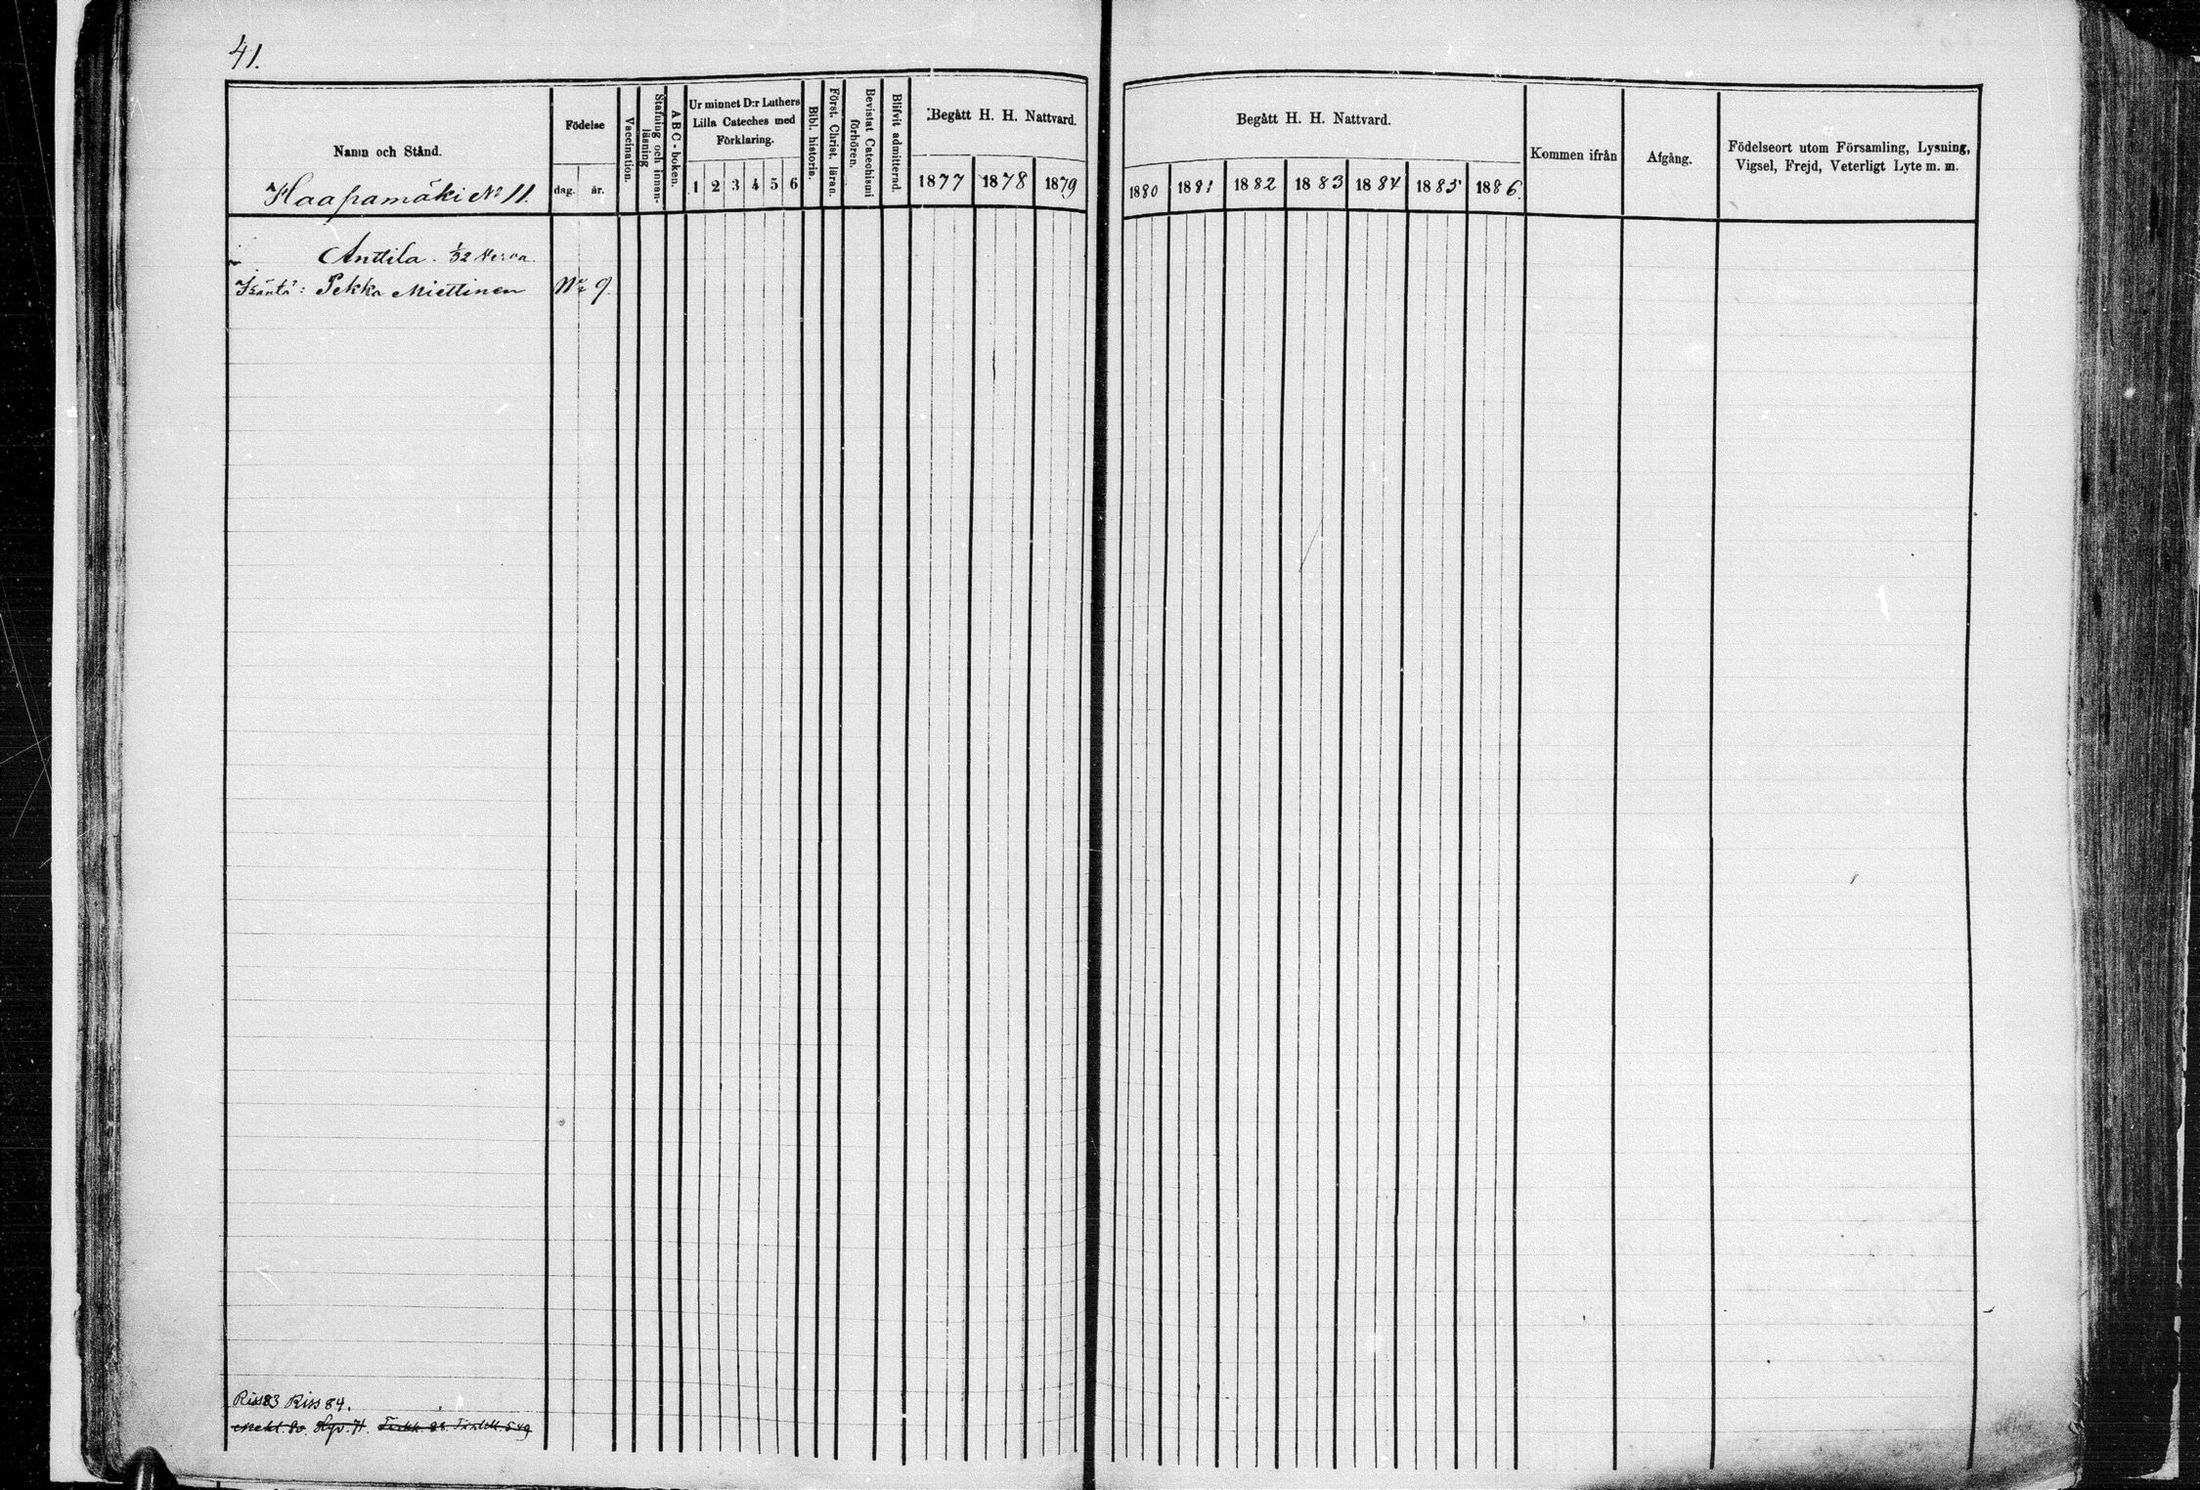 41.
Namn och Stånd.
Haapamäki № 11.
Födelse
dag. år.
Vaccination.
Stafning och innan-
läsning
A B C - boken.
Ur minnet D:r Luthers
Lilla Cateches med
Förklaring.
1 2 3 4 5 6
Bibl. historia.
Först. Christ. läran.
Bevistat Catechismi
förhören.
Blifvit admitterad.
Begått H. H. Nattvard.
1877 1878 1879
Begått H. H. Nattvard.
1880 1881 1882 1883 1884 1885 1886.
Kommen ifrån
Afgång.
Födelseort utom Församling, Lysning,
Vigsel, Frejd, Veterligt Lyte m. m.
Anttila. 1/32
Isäntä: Pekka Miettinen № 9.
Riss 83 Riss 84.